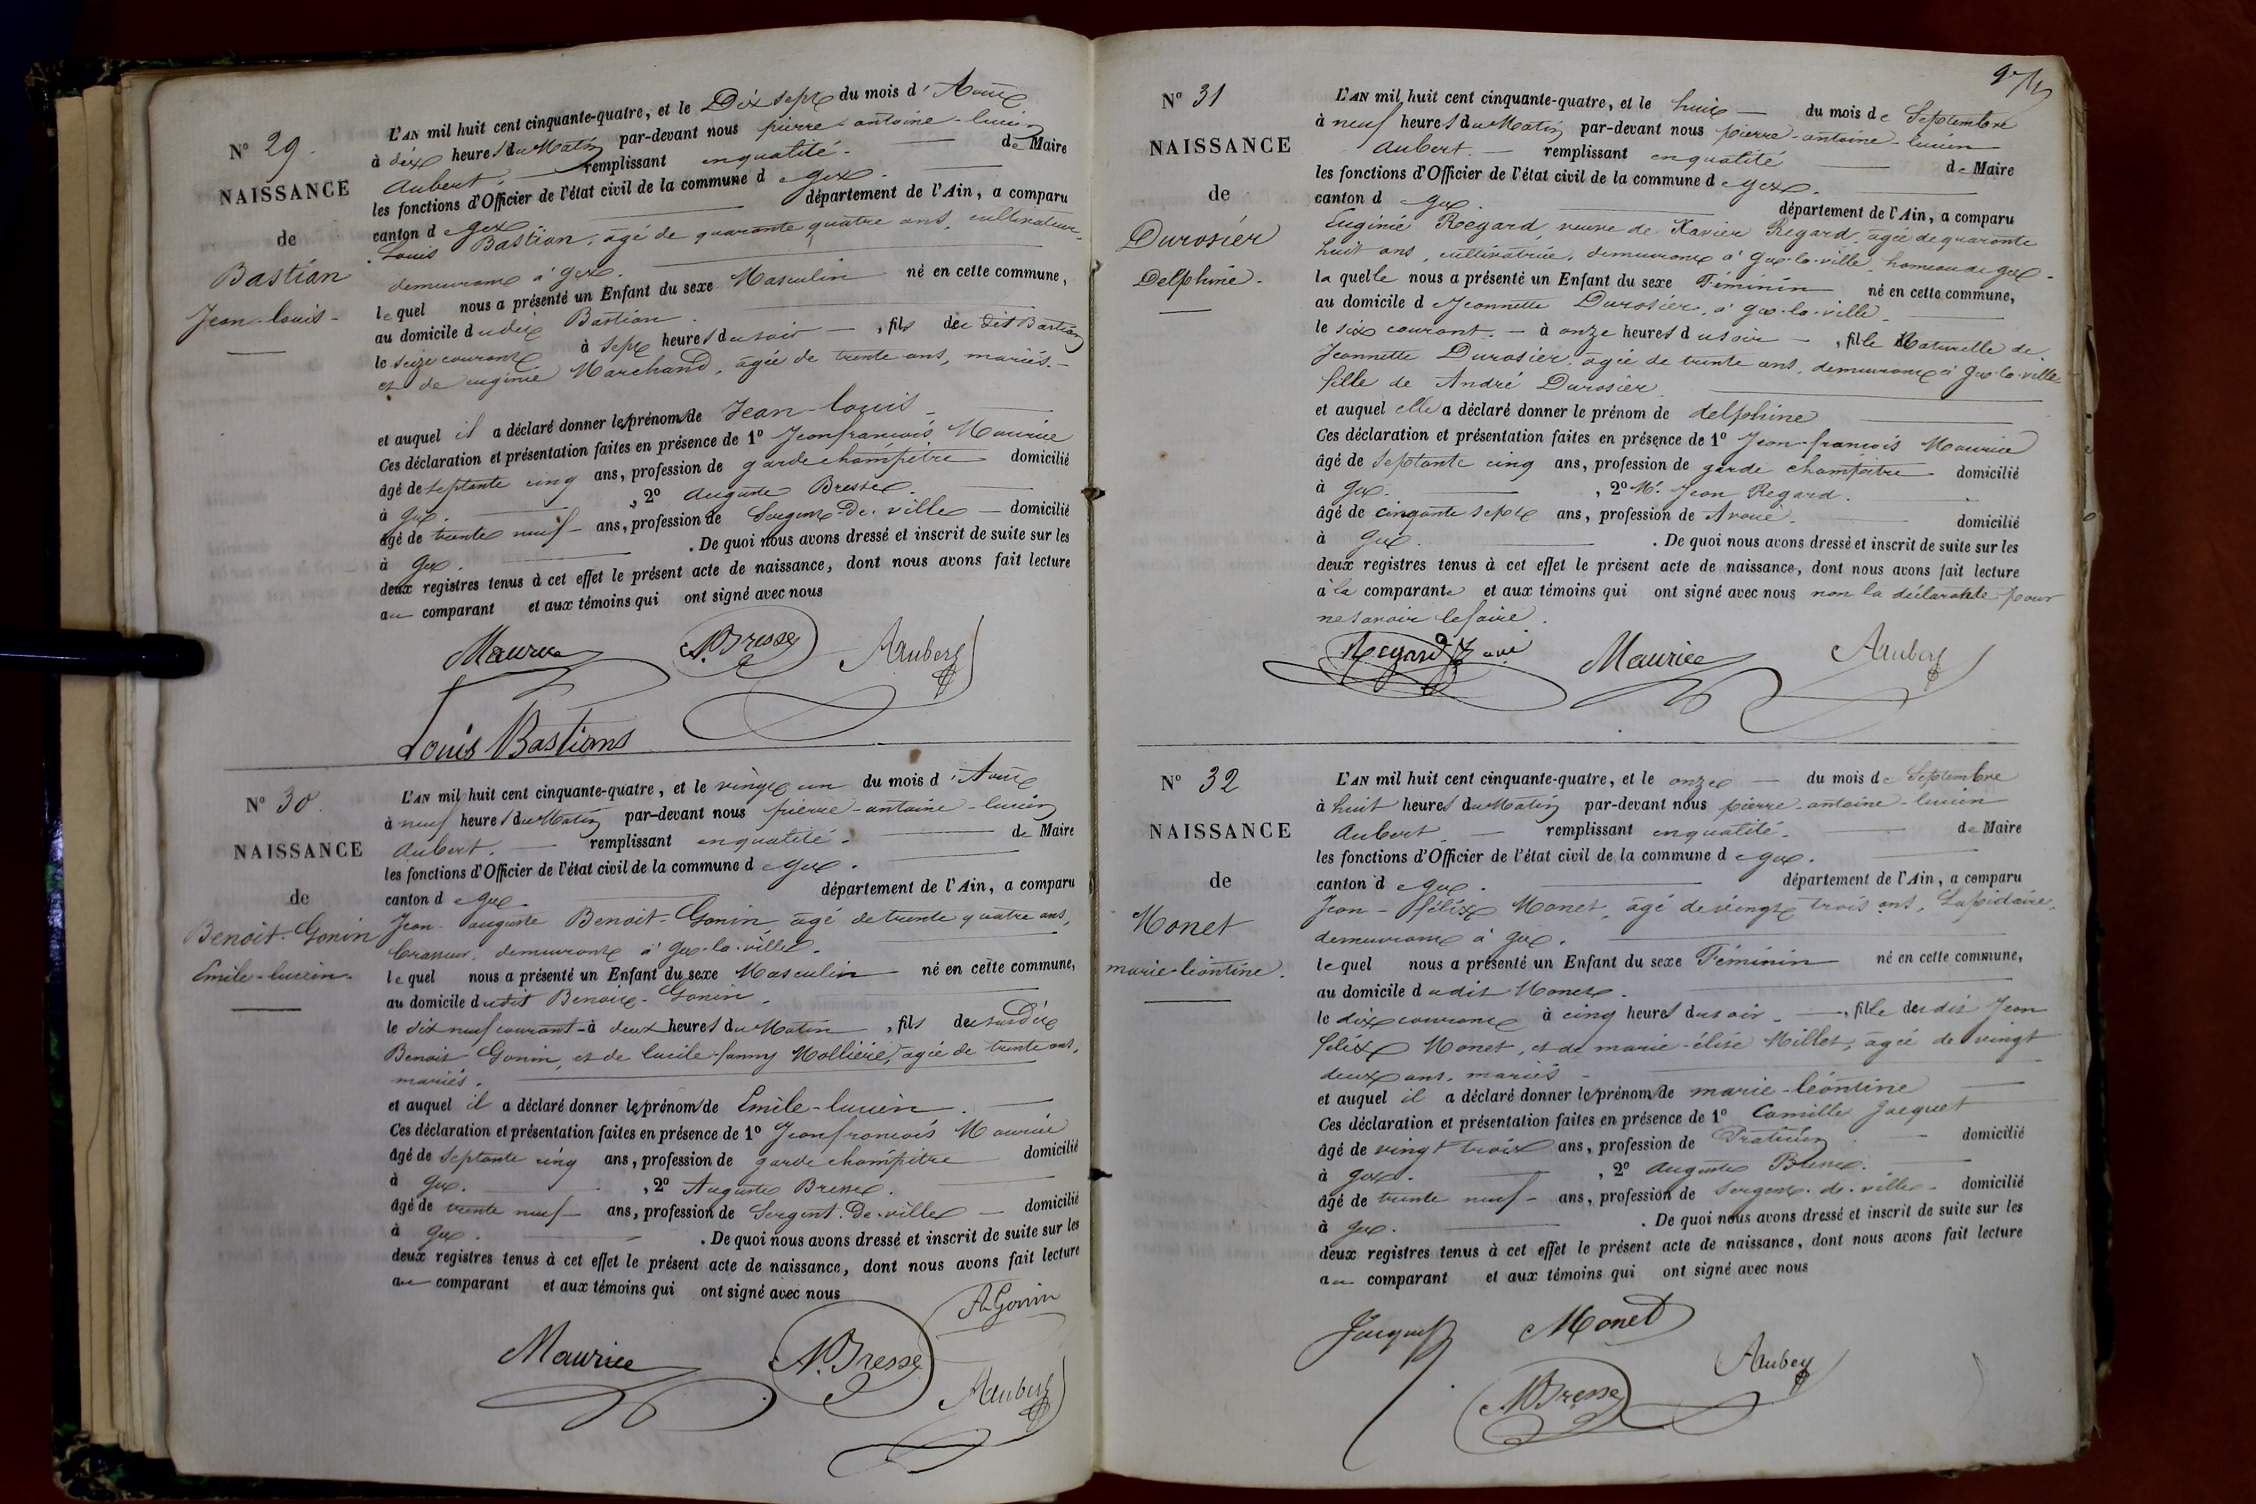 N° 29.
NAISSANCE
de
Bastian
Jean-louis-
L'AN mil huit cent cinquante-quatre, et le Dix sept du mois d'Aout
à dix heures du Matin par-devant nous pierre-antoine-lucien
Aubert. remplissant en qualité. de Maire
les fonctions d'Officier de l'état civil de la commune de gex.
canton de gex département de l'Ain, a comparu
Louis Bastian, âgé de quarante quatre ans, cultivateur,
demeurant à gex.
lequel nous a présenté un Enfant du sexe Masculin né en cette commune,
au domicile dudit Bastian
le seize courant à sept heures du soir, fils du dit Bastian
et de eugénie Marchand, âgée de trente ans, mariés.
et auquel il a déclaré donner les prénoms de Jean-louis
Ces déclaration et présentation faites en présence de 1° Jean françois Maurice
âgé de septante cinq ans, profession de garde champêtre domicilié
à gex. , 2° auguste Bresse.
âgé de trente neuf ans, profession de Sergent-De-ville domicilié
à gex. . De quoi nous avons dressé et inscrit de suite sur les
deux registres tenus à cet effet le présent acte de naissance, dont nous avons fait lecture
au comparant et aux témoins qui ont signé avec nous
Maurice A. Bresse A Aubert
Louis Bastians
N° 30.
NAISSANCE
de
Benoit-Gonin
Emile-lucien-
L'AN mil huit cent cinquante-quatre, et le vingt un du mois d'Aout
à neuf heures du Matin par-devant nous pierre-antoine-lucien
Aubert. remplissant en qualité. de Maire
les fonctions d'Officier de l'état civil de la commune de gex.
canton de gex. département de l'Ain, a comparu
Jean-auguste Benoit-Gonin âgé de trente quatre ans,
demeurant à gex-la-ville.
lequel nous a présenté un Enfant du sexe Masculin né en cette commune,
au domicile dudit Benoit-Gonin.
le dix neuf courant à deux heures du Matin, fils du susdit
Benoit Gonin, et de lucile-fanny Mollière, âgée de trente ans,
mariés.
et auquel il a déclaré donner les prénoms de Emile-lucien.
Ces déclaration et présentation faites en présence de 1° Jean françois Maurice
âgé de septante cinq ans, profession de garde champêtre domicilié
à gex. , 2° Auguste Bresse.
âgé de trente neuf ans, profession de Sergent-De-ville domicilié
à gex. . De quoi nous avons dressé et inscrit de suite sur les
deux registres tenus à cet effet le présent acte de naissance, dont nous avons fait lecture
au comparant et aux témoins qui ont signé avec nous
A. Gonin
Maurice A. Bresse A Aubert
N° 31
NAISSANCE
de
Durosier
Delphine.
L'AN mil huit cent cinquante-quatre, et le huit du mois de Septembre
à neuf heures du Matin par-devant nous pierre-antoine-lucien
Aubert. remplissant en qualité de Maire
les fonctions d'Officier de l'état civil de la commune de gex.
canton de gex. département de l'Ain, a comparu
Eugénie Regard, veuve de Xavier Regard, âgée de quarante
huit ans, cultivatrice, demeurant à gex-la-ville, hameau de gex.
laquelle nous a présenté un Enfant du sexe Féminin né en cette commune,
au domicile de Jeannette Durosier, à gex-la-ville.
le six courant. à onze heures du soir, fille Naturelle de
Jeannette Durosier, âgée de trente ans, demeurant à gex-la-ville
fille de André Durosier
et auquel elle a déclaré donner le prénom de delphine
Ces déclaration et présentation faites en présence de 1° Jean-françois Maurice
âgé de septante cinq ans, profession de garde champêtre domicilié
à gex. , 2° Mr. Jean Regard.
âgé de cinquante sept ans, profession de Avoué. domicilié
à gex. . De quoi nous avons dressé et inscrit de suite sur les
deux registres tenus à cet effet le présent acte de naissance, dont nous avons fait lecture
à la comparante et aux témoins qui ont signé avec nous non la déclarante pour
ne savoir le faire.
Regard Maurice A Aubert
N° 32
NAISSANCE
de
Monet
marie-léontine.
L'AN mil huit cent cinquante-quatre, et le onze du mois de Septembre
à huit heures du Matin par-devant nous pierre-antoine-lucien
Aubert. remplissant en qualité. de Maire
les fonctions d'Officier de l'état civil de la commune de gex.
canton de gex. département de l'Ain, a comparu
Jean-félix Monet, âgé de vingt trois ans, Lapidaire,
demeurant à gex.
lequel nous a présenté un Enfant du sexe Féminin né en cette commune,
au domicile dudit Monet.
le dix courant à cinq heures du soir., fille du dit Jean
félix Monet, et de marie-élise Millet, âgée de vingt
deux ans, mariés
et auquel il a déclaré donner les prénoms de marie-léontine
Ces déclaration et présentation faites en présence de 1° Camille Jacquet
âgé de vingt trois ans, profession de Praticien domicilié
à gex. , 2° auguste Bresse.
âgé de trente neuf ans, profession de Sergent-de-ville domicilié
à gex. . De quoi nous avons dressé et inscrit de suite sur les
deux registres tenus à cet effet le présent acte de naissance, dont nous avons fait lecture
au comparant et aux témoins qui ont signé avec nous
Jacquet Monet
A Bresse A Aubert